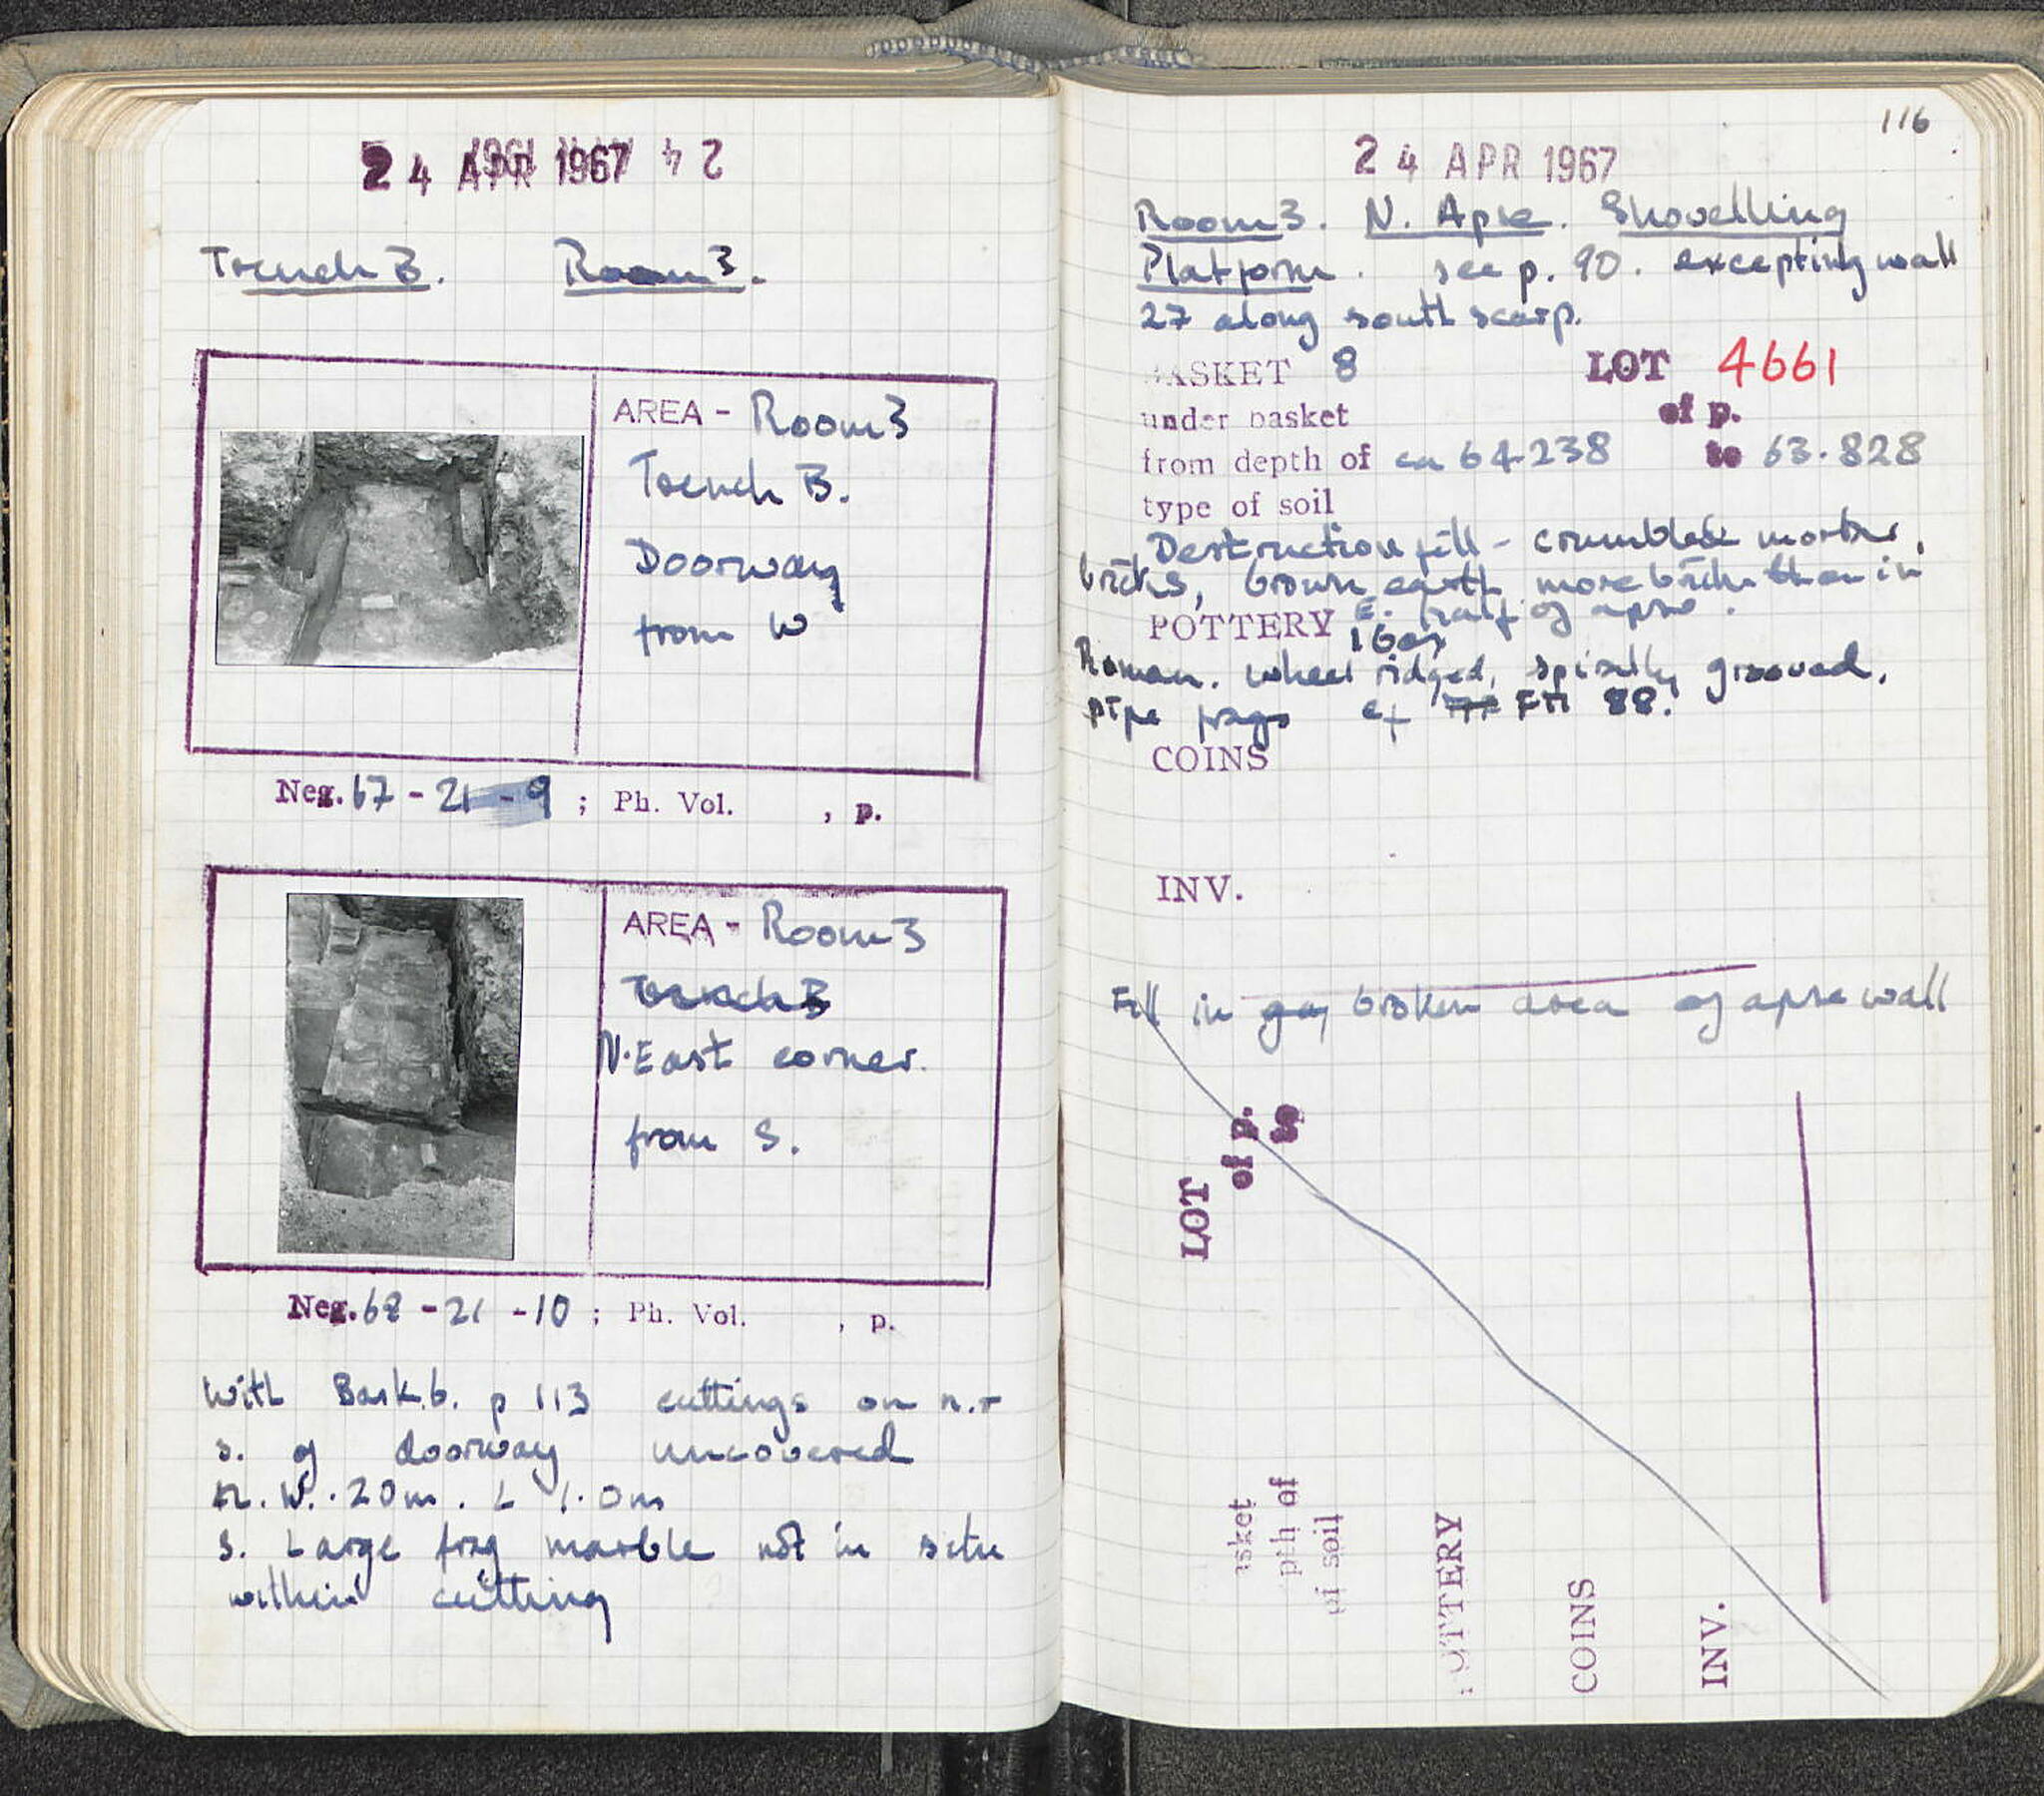 24 APR 1967
Trench B. Room 3.
AREA - Room 3
Trench B.
Doorway
from W
Neg. 67 - 21 - 9 ; Ph. Vol. , p.
AREA - Room 3
Trench B
N. East corner.
from S.
Neg. 68 - 21 - 10 ; Ph. Vol. , p.
With Bask. 6. p 113 cuttings on n. +
s. of doorway uncovered
n. W. .20m. L 1.0m
s. Large frag marble not in situ
within cutting
116
24 APR 1967
Room 3. N. Apse. Shovelling
Platform. see p. 90. excepting wall
27 along south scarp.
BASKET 8 LOT 4661
under basket of p.
from depth of ca 64.238 to 63.828
type of soil
Destruction fill - crumbled mortar,
bricks, brown earth more bricks than in
E. half of apse.
POTTERY
Roman. wheel ridged, spirally grooved,
pipe frags cf FM 88.
COINS
INV.
Fill in broken area of apse wall
LOT
of p.
to
asket
pth of
of soil
OTTERY
COINS
INV.